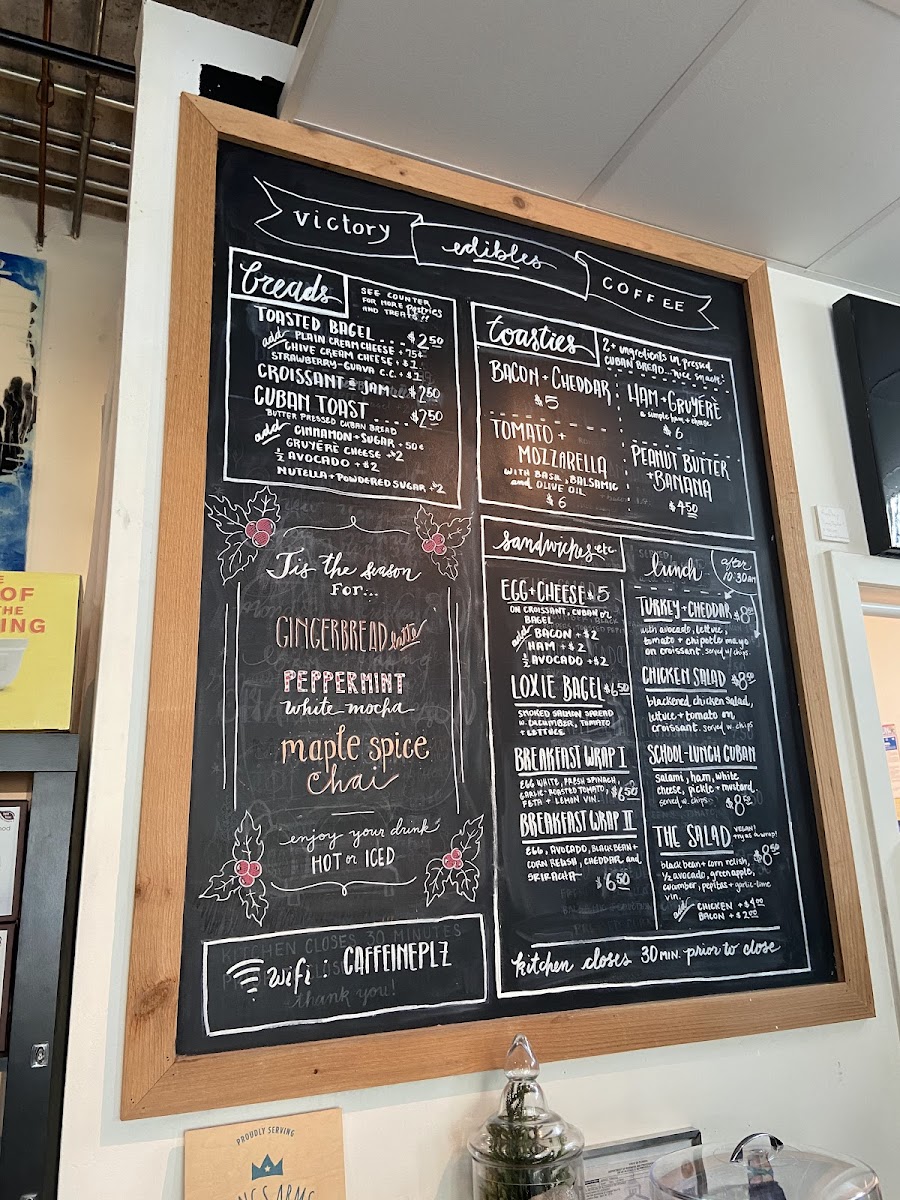 victory edibles COFFEE
breads
SEE COUNTER
FOR MORE Pastries
AND TREATS!!
TOASTED BAGEL $2.50
add PLAIN CREAM CHEESE + 75¢
CHIVE CREAM CHEESE + $1
STRAWBERRY-GUAVA C.C. + $1
CROISSANT JAM $2.50
CUBAN TOAST $2.50
BUTTER PRESSED CUBAN BREAD
add CINNAMON + SUGAR + 50¢
GRUYÈRE CHEESE + $2
½ AVOCADO + $2
NUTELLA + POWDERED SUGAR + $2
toasties
2+ ingredients in pressed
CUBAN BREAD... nice snack!
BACON + CHEDDAR
$5
HAM + GRUYÈRE
a simple ham + cheese
$6
TOMATO +
MOZZARELLA
WITH BASIL, BALSAMIC
and OLIVE OIL
$6
PEANUT BUTTER
+ BANANA
$4.50
Tis the season
FOR...
GINGERBREAD latte
PEPPERMINT
white mocha
maple spice
chai
enjoy your drink
HOT or ICED
wifi: CAFFEINEPLZ
KITCHEN CLOSES 30 MINUTES
thank you!
sandwiches etc
EGG + CHEESE $5
ON CROISSANT, CUBAN or
BAGEL
add BACON + $2
HAM + $2
½ AVOCADO + $2
LOXIE BAGEL $6.50
SMOKED SALMON SPREAD
w. CUCUMBER, TOMATO
+ LETTUCE
BREAKFAST WRAP I
EGG WHITE, FRESH SPINACH,
GARLIC-ROASTED TOMATO,
FETA + LEMON VIN. $6.50
BREAKFAST WRAP II
EGG, AVOCADO, BLACK BEAN +
CORN RELISH, CHEDDAR and
SRIRACHA $6.50
SERVED
lunch after
10:30am
TURKEY + CHEDDAR $8.50
with avocado, lettuce,
tomato + chipotle mayo
on croissant. served w/ chips.
CHICKEN SALAD $8.50
blackened chicken salad,
lettuce + tomato on
croissant. served w. chips
SCHOOL-LUNCH CUBAN
Salami, ham, white
cheese, pickle + mustard.
served w. chips. $8.50
THE SALAD VEGAN!
try as a wrap!
black bean + corn relish, $8.50
½ avocado, green apple,
cucumber, pepitas + garlic-lime
vin.
add CHICKEN + $4.00
BACON + $2.00
kitchen closes 30 MIN. prior to close
OF
THE
PROUDLY SERVING